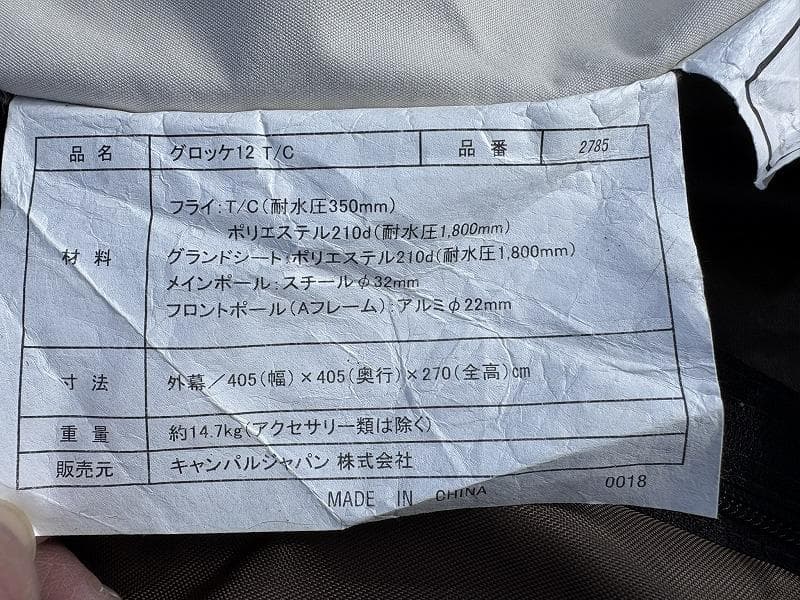 品名 グロッケ12 T/C 品番 2785
材料 フライ：T/C（耐水圧350mm）
ポリエステル210d（耐水圧1,800mm）
グランドシート：ポリエステル210d（耐水圧1,800mm）
メインポール：スチールφ32mm
フロントポール（Aフレーム）：アルミφ22mm
寸法 外幕／405（幅）×405（奥行）×270（全高）cm
重量 約14.7kg（アクセサリー類は除く）
販売元 キャンパルジャパン 株式会社
MADE IN CHINA 0018